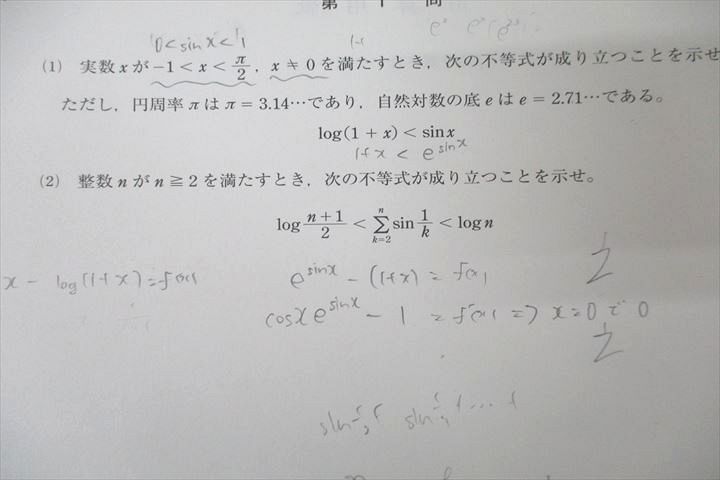 第 1 問
0<sin x<1
(1) 実数 x が −1 < x < π/2 , x ≠ 0 を満たすとき, 次の不等式が成り立つことを示せ
ただし, 円周率 π は π = 3.14… であり, 自然対数の底 e は e = 2.71… である。
log(1 + x) < sin x
1+x < e^{sin x}
(2) 整数 n が n ≧ 2 を満たすとき, 次の不等式が成り立つことを示せ。
log (n+1)/2 < Σ_{k=2}^{n} sin 1/k < log n
x − log(1+x) = f(x)
e^{sin x} − (1+x) = f(x)
cos x e^{sin x} − 1 = f'(x) ⇒ x=0 で 0